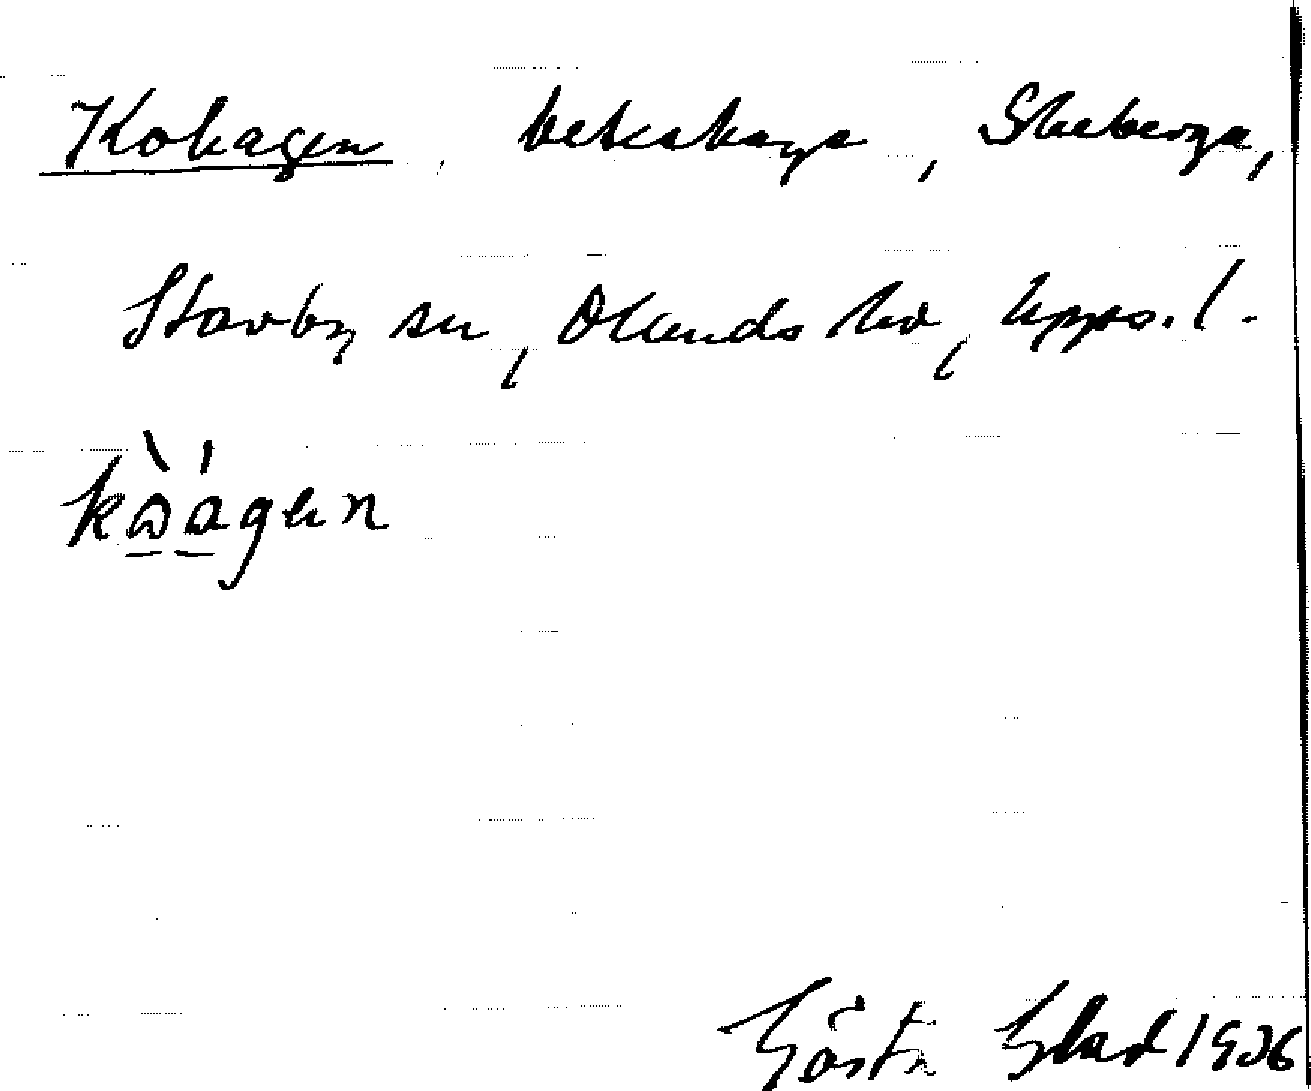 Kohagen, beteshage, Skeberga,
Stavby sn, Olands hd, Upps. l.
kωագen
Gösta Blad 1936